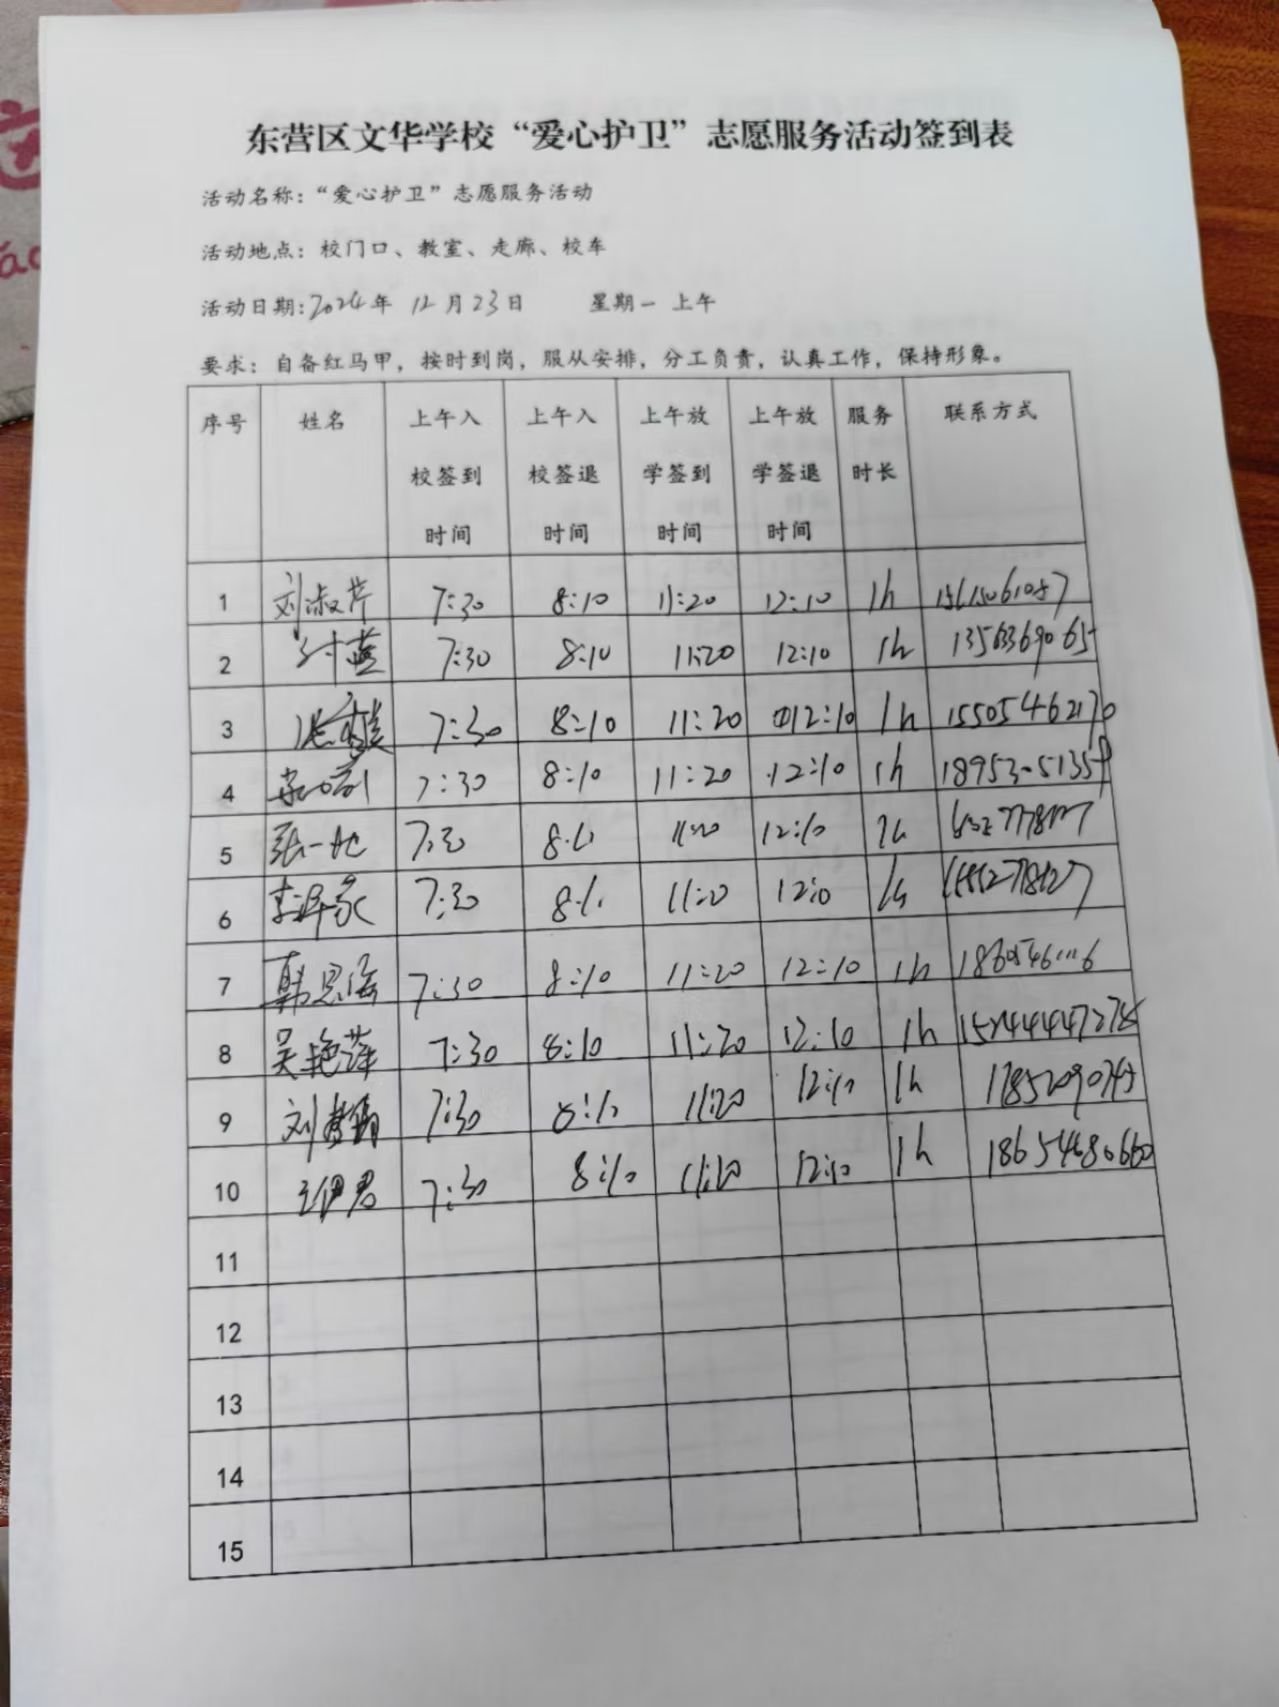 东营区文华学校“爱心护卫”志愿服务活动签到表
活动名称：“爱心护卫”志愿服务活动
活动地点：校门口、教室、走廊、校车
活动日期：2024年 12月23日 星期一 上午
要求：自备红马甲，按时到岗，服从安排，分工负责，认真工作，保持形象。
序号 姓名 上午入校签到时间 上午入校签退时间 上午放学签到时间 上午放学签退时间 服务时长 联系方式
1 刘淑芹 7:30 8:10 11:20 12:10 1h
2 7:30 8:10 11:20 12:10 1h 13563690655
3 7:30 8:10 11:20 12:10 1h 15505462170
4 7:30 8:10 11:20 12:10 1h
5 张一 7:30 11:20 12:10 1h
6 李泽家 7:30 11:20 1h
7 韩思 7:30 8:10 11:20 12:10 1h
8 吴艳萍 7:30 8:10 11:20 12:10 1h
9 刘 7:30 8:10 11:20 12:10 1h
10 7:30 8:10 11:20 12:10 1h 18654680660
11
12
13
14
15